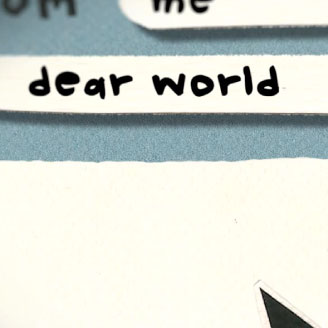 om me
dear world